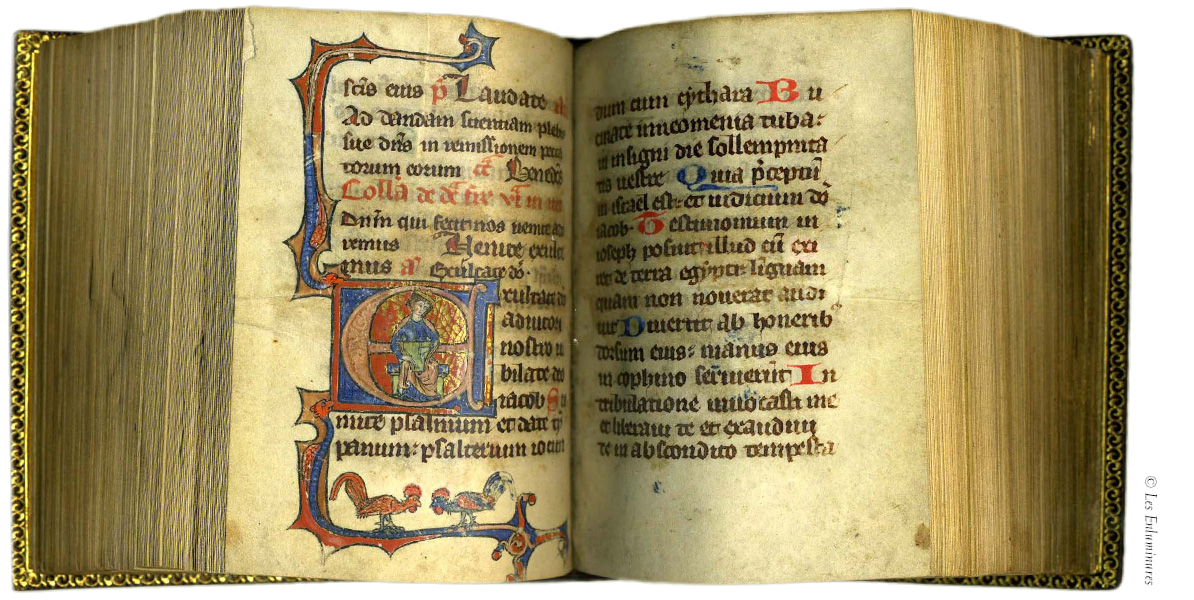 scīs eius p̄ Laudate
Ad dandam scientiam plebi
sue dn̄s in remissionem pecca
torum eorum Benedc̄s
Colla de dē
Dnm̄ qui fecit nos venite ad
remus Venite exulte
mus a Exultate dō
Exultate dō
adiutori
nostro iu
bilate dō
iacob Su
mite psalmum et date tȳ
panum: psalterium iocun
dum cum cythara Bu
cinate in neomenia tuba:
in insigni die sollempnita
tis vestre Quia p̄ceptū
in israel est: et iudicium dō
iacob. Testimonium in
ioseph posuit illud cū exi
ret de terra egypti: linguam
quam non noverat audi
vit Divertit ab honerib
dorsum eius: manus eius
in cophino servierūt In
tribulatione invocasti me
et liberavi te et exaudivi
te in abscondito tempesta
© Les Enluminures